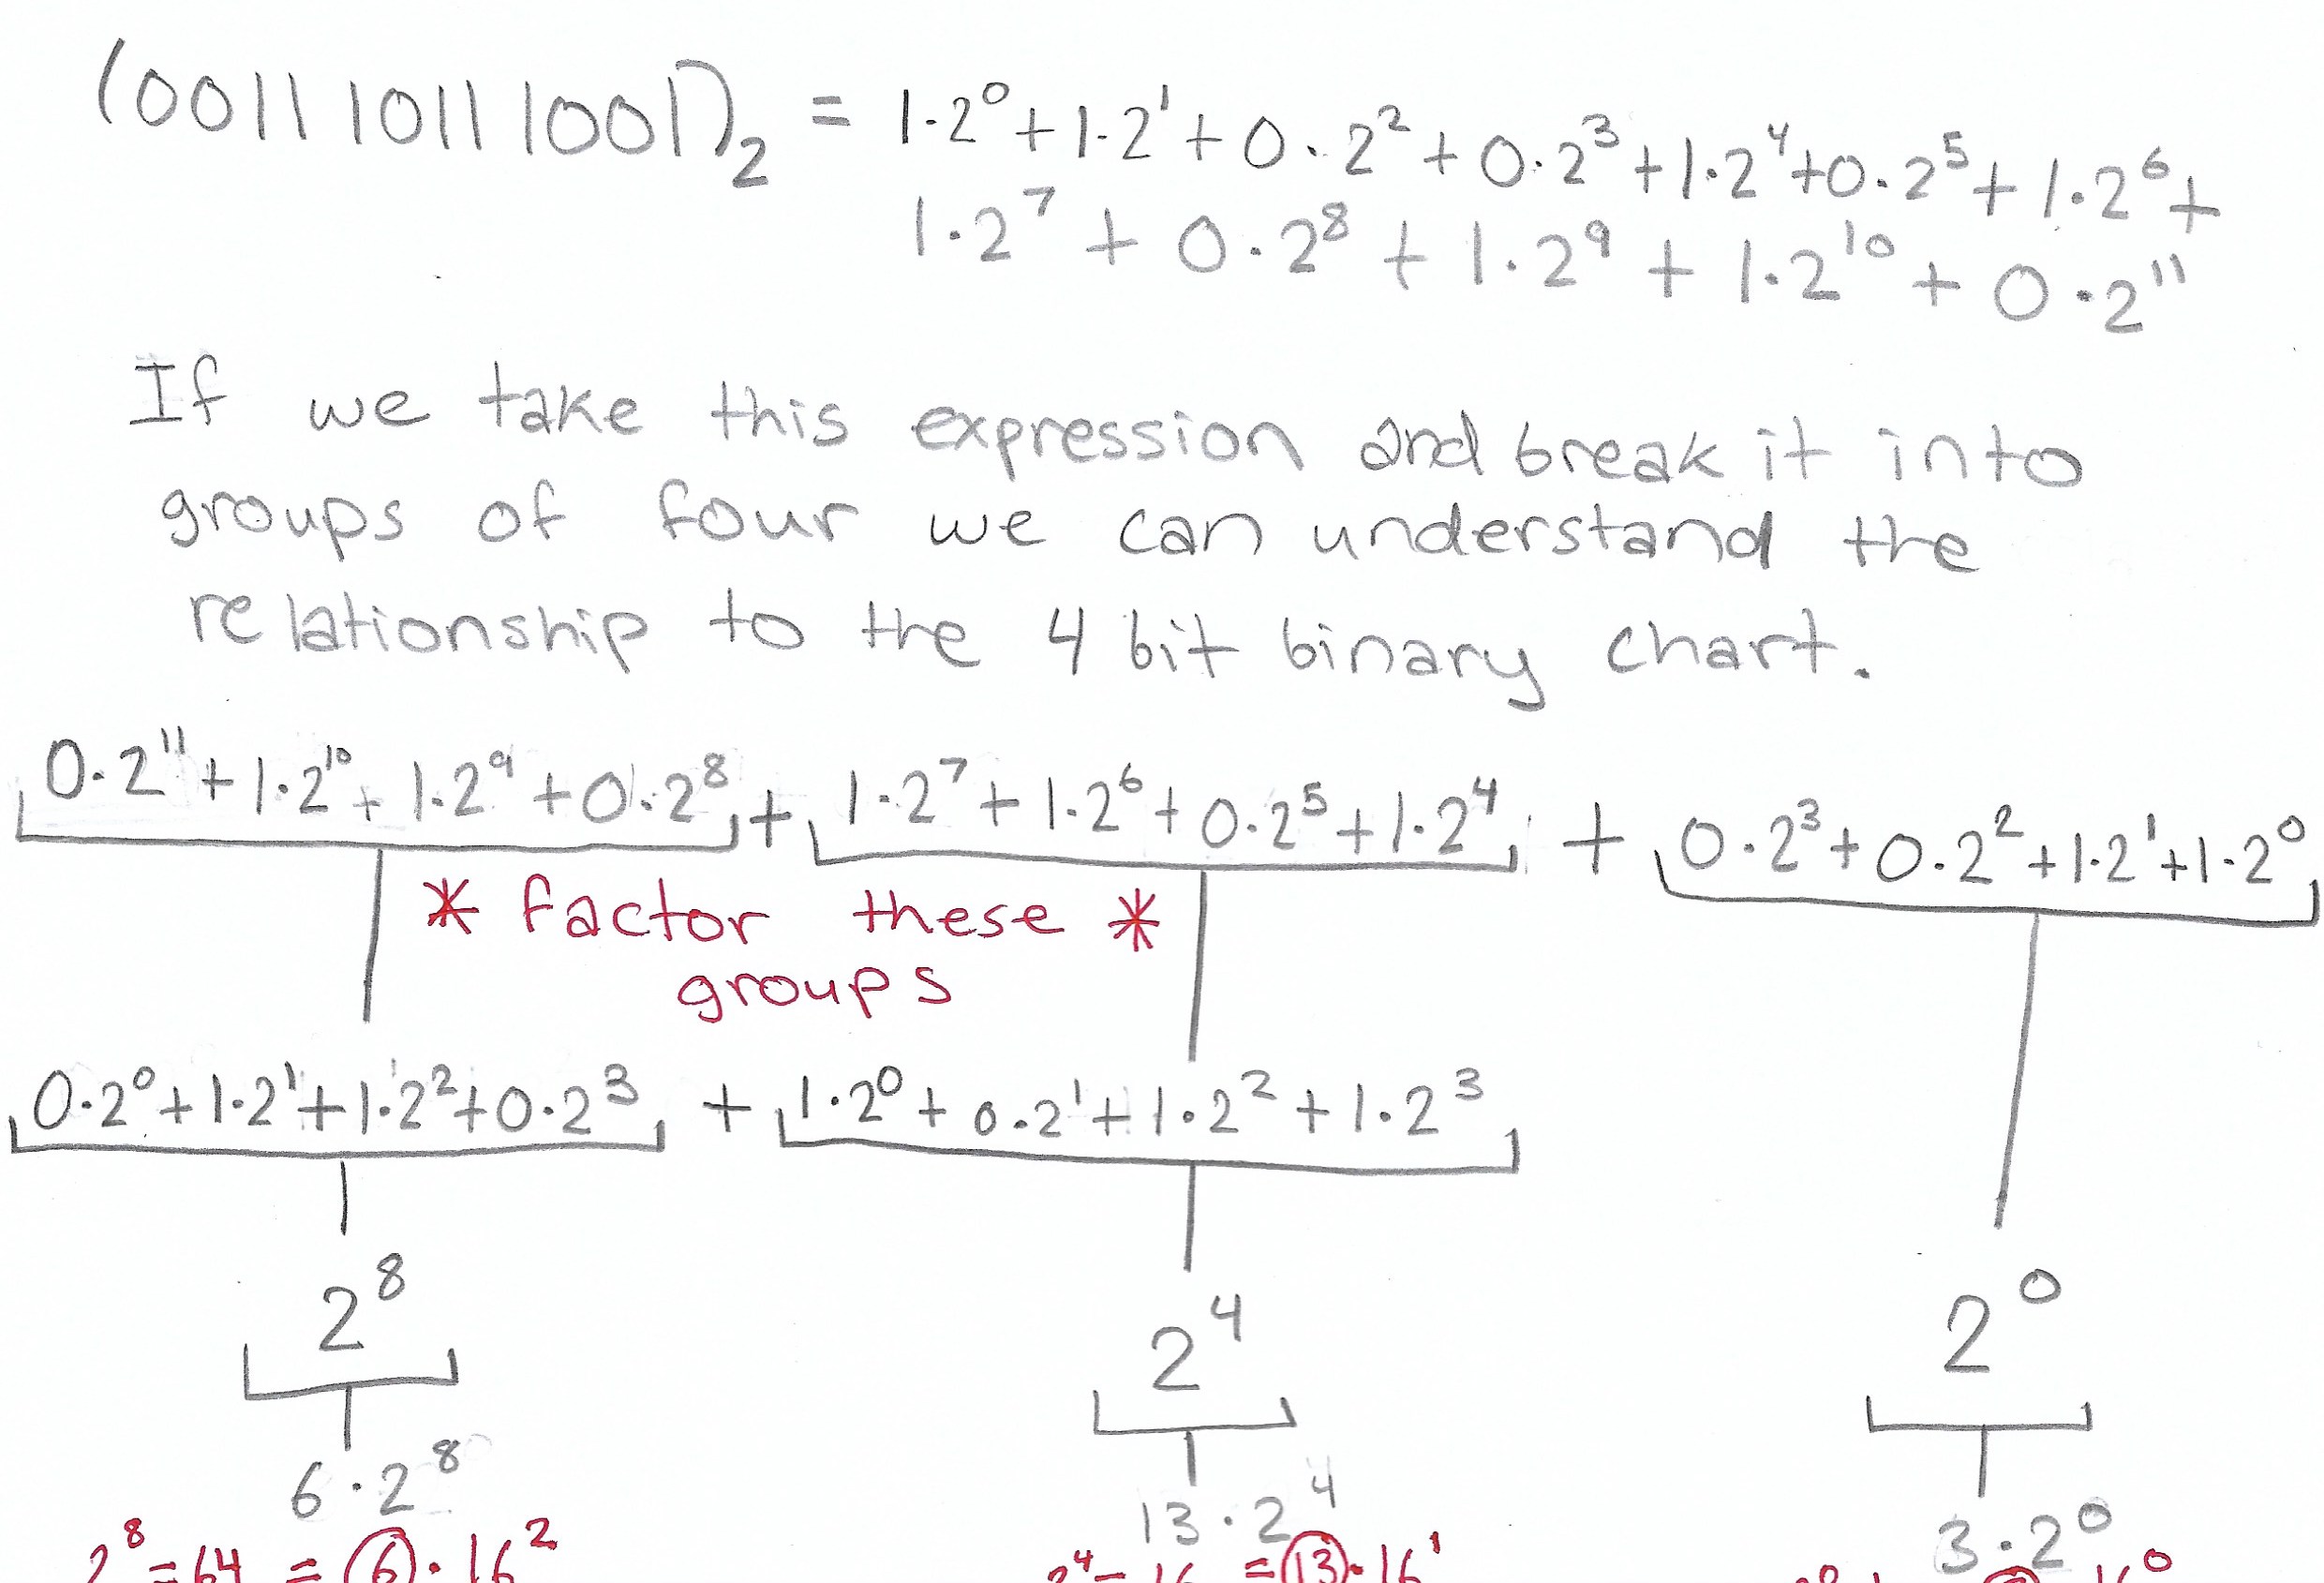 (0011 1011 1001)₂ = 1·2⁰+1·2¹+0·2²+0·2³+1·2⁴+0·2⁵+1·2⁶+
1·2⁷ + 0·2⁸ + 1·2⁹ + 1·2¹⁰ + 0·2¹¹
If we take this expression and break it into
groups of four we can understand the
relationship to the 4 bit binary chart.
0·2¹¹+1·2¹⁰+1·2⁹+0·2⁸ + 1·2⁷+1·2⁶+0·2⁵+1·2⁴ + 0·2³+0·2²+1·2¹+1·2⁰
* factor these *
groups
0·2⁰+1·2¹+1·2²+0·2³ + 1·2⁰+0·2¹+1·2²+1·2³
2⁸ 2⁴ 2⁰
6·2⁸ 13·2⁴ 3·2⁰
2⁸=64 = 6·16² 2⁴=16 =13·16¹